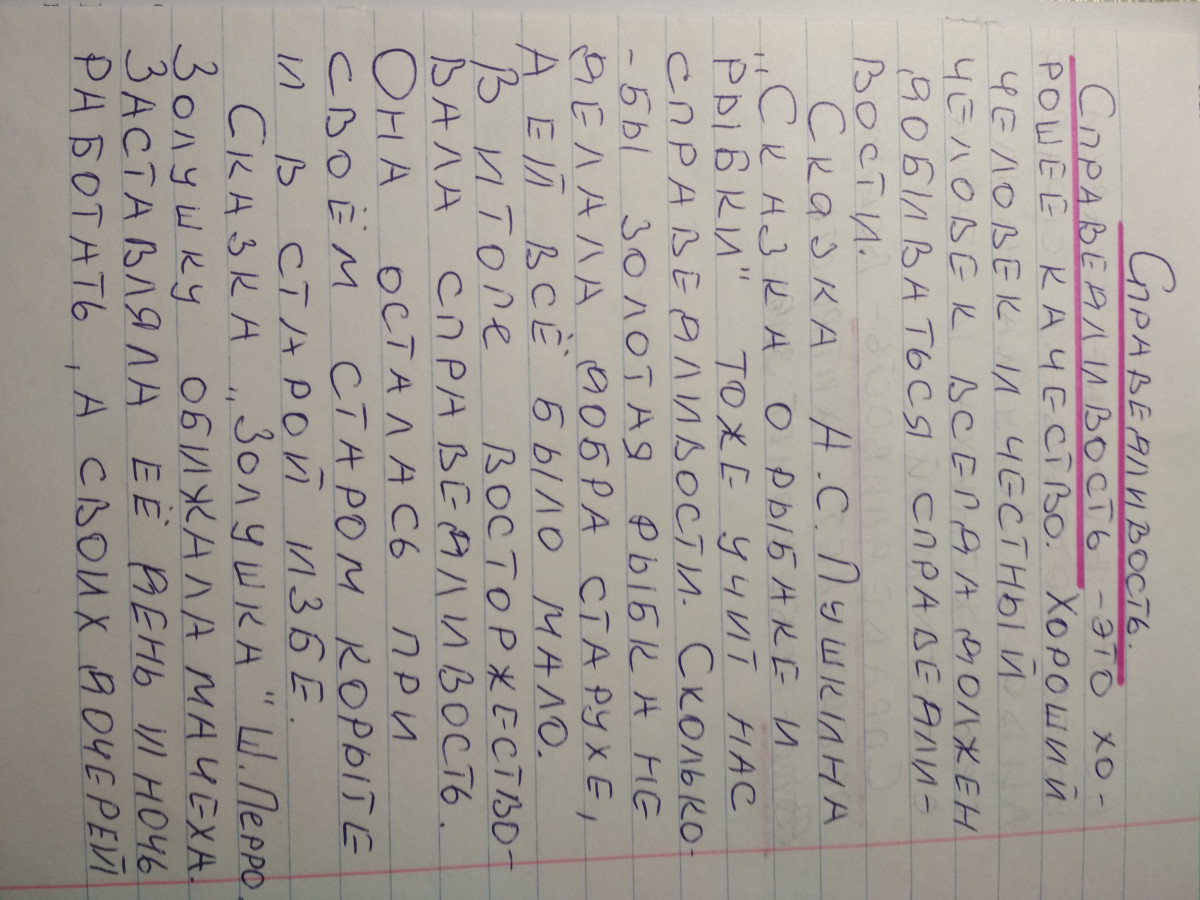 Справедливость.
Справедливость - это хо-
рошее качество. Хороший
человек и честный
человек всегда должен
добиваться справедли-
вости.
Сказка А.С. Пушкина
„Сказка о рыбаке и
рыбки" тоже учит нас
справедливости. Сколько-
-бы золотая рыбка не
делала добра старухе,
а ей всё было мало.
В итоге восторжество-
вала справедливость.
Она осталась при
своём старом корыте
и в старой избе.
Сказка „Золушка" Ш. Перро.
Золушку обижала мачеха.
Заставляла её день и ночь
работать, а своих дочерей